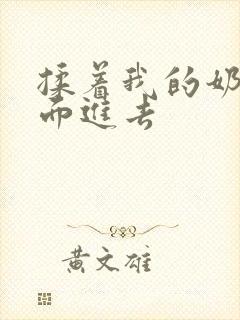 揉着我的奶
而進去
黄文雄